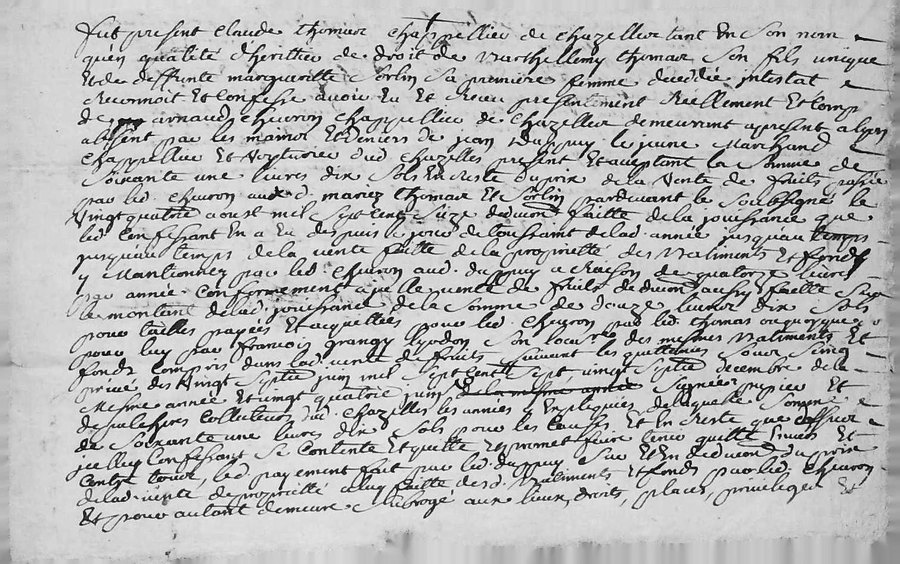 fut present Claude thomas chappellier de chazelles tant En son nom
quen qualité dheritier de droit de Barthellemy thomas son fils unique
Et de deffunte margueritte Sorlin sa premiere femme decedée intestat
Reconnoit Et Confesse avoir Eu Et Receu presentement Reellement Et Comp
de arnaud Cheuron chappellier de chazelles demeurant apresent a lyon
absent par les mains Et deniers de jean dupuy le jeune Marchand
chappellier Et dud chazelles present Et acceptant la Somme de
Soixante une liures dix Sols En Reste du prix de la vente de fruits passée
par led. Cheuron aux d. mariez thomas Et Sorlin pardevant le Soubsigné le
vingt quatre aoust mil Sept cent Seize deduction faitte de la jouissance que
led. Confessant En a Eu despuis le jour de toussaint de lad. année jusquau temps
jusquau temps de la vente faitte de la proprietté des Batiments Et fonds
y Mantionnez par led. Cheuron aud. dupuy a Raison de quatorze liures
par année Conformement a que la vente de fruits deduction aussy faitte Sur
le montant de lad. jouissance de la Somme de douze liures dix Sols
pour tailles payées Et acquittées pour led. Cheuron par led. thomas ou quoyque
pour luy par francois grangy Son locataire des mesmes Batiments Et
fonds Compris dans lad. vente de fruits Suivant les quittances Sous Seing
privé des vingt Septie juin mil Sept cent Sept vingt Septie decembre de la
Mesme année Et vingt quatrie juin de la mesme année Signées papier Et
Collecteurs dud. chazelles les années y Expliquées de laquelle Somme
de Soixante une liures dix Sols pour les Causes Et En Reste que dessus
jcelluy Confessant Se Contente Et quitte Et promet faire tenir quitte Envers Et
Contre tous, led. payement fait par led. dupuy Sur Et En deduction du prix
de lad. vente de proprietté a luy faitte des d. Batiments Et fonds par led. Cheuron
Et pour autant demeure Subrogé aux lieux, droits, places, privileges Et